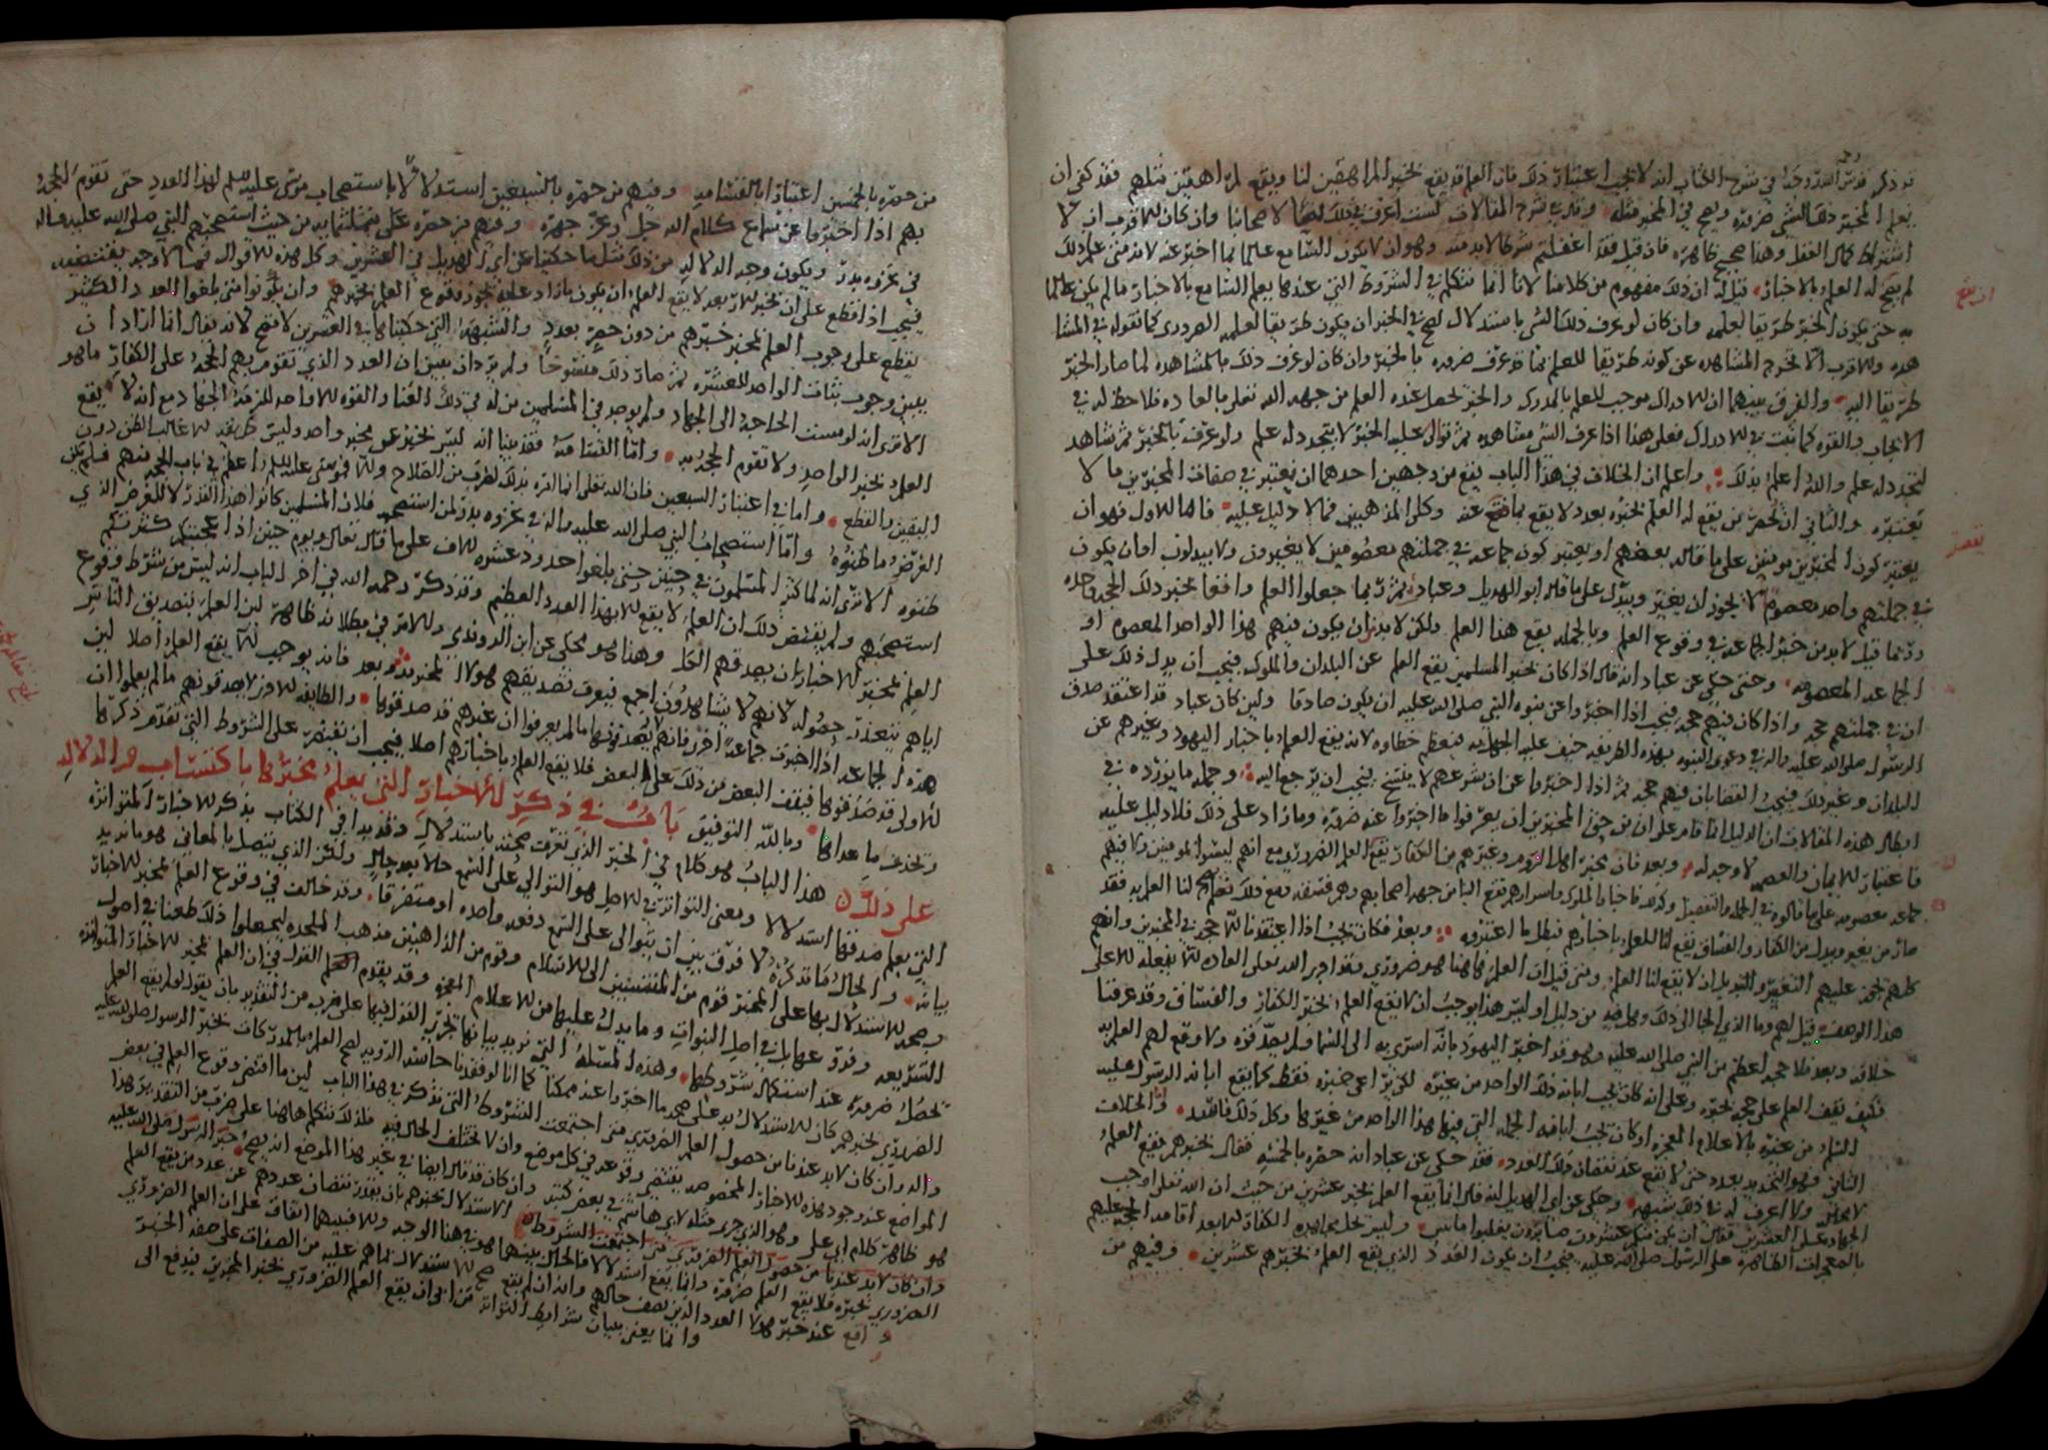 قد ذكر في شرح الكتاب انه لا يجب اعتبار ذلك فان العلم قد يقع بخبر المراهقين لنا ويقع لمراهقين مثلهم فقد كفى ان
يعلم المخبر ذلك الشي ضرورة ويصح في المخبر مثله وقال في شرح المقالات لست اعرف في ذلك نصا لاصحابنا وان كان الاقرب ان لا
اشتراط كمال العقل وهذا صحيح ظاهر فان قيل فقد اغفلتم شرطا لابد منه وهو ان لا يكون السامع عالما بما اخبر عنه لانه متى علم ذلك
لم يصح له العلم بالاخبار قيل له ان ذلك مفهوم من كلامنا لانا انما نتكلم في الشروط التي عندها يعلم السامع بالاخبار ما لم يكن عالما
به حتى يكون الخبر طريقا لعلمه وان كان لو عرف ذلك الشي باستدلال لصح في الخبر ان يكون طريقا لعلمه الضروري كما نقوله في المشا
هدة والاقرب الا تخرج المشاهدة عن كونه طريقا للعلم بما قد عرف ضرورة بالخبر وان كان لو عرف ذلك بالمشاهدة لما صار الخبر
طريقا اليه والفرق بينهما ان الادراك موجب للعلم بالمدرك والخبر يحصل عنده العلم من جهة الله تعلى بالعادة فلا حظ له في
الايجاب والقوة كما ثبت في الادراك فعلى هذا اذا عرف الشي مشاهدة ثم توالى عليه الخبر لا يتجدد له علم ولو عرف بالخبر ثم شاهد
لتجدد له علم والله اعلم بذلك واعلم ان الخلاف في هذا الباب يقع من وجهين احدهما ان يعتبر في صفات المخبرين ما لا
نعتبره والثاني ان يحصر من يقع له العلم بخبره بعدد لا يقع بما نقص عنه وكلى المذهبين مما لا دليل عليه فاما الاول فهو ان
يعتبر كون المخبرين مومنين على ما قاله بعضهم او يعتبر كون جماعة في جملتهم معصومين لا يغيرون ولا يبدلون او ان يكون
في جملتهم واحد معصوم لا يجوز ان يغير ويبدل على ما قاله ابو الهديل وعباد ثم ربما جعلوا العلم واقعا بخبر ذلك الحجة وحده
وربما قيل لابد من خبر الجماعة في وقوع العلم وبالجملة يقع هذا العلم ولكن لابد ان يكون فيهم هذا الواحد المعصوم او
الجماعة المعصومة وحتى حكي عن عباد انه قال اذا كان بخبر المسلمين يقع العلم عن البلدان والملوك فيجب ان يدل ذلك على
ان في جملتهم حجة واذا كان فيهم حجة فيجب اذا اخبروا عن نبوة النبي صلى الله عليه ان يكون صادقا ولئن كان عباد قد اعتقد صدق
الرسول صلى الله عليه واله في دعوى النبوة بهذه الطريقة خيف عليه الجهل به فيعظم خطاؤه لانه يقع العلم باخبار اليهود وغيرهم عن
البلدان وغير ذلك فيجب القضا بان فيهم حجة ثم اذا اخبروا عن ان شرعهم لا ينسخ يجب ان يرجع اليه وجملة ما يورده في
ابطال هذه المقالات ان الدليل انما قام على ان من حق المخبرين ان يعرفوا ما اخبروا عنه ضرورة وما زاد على ذلك فلا دليل عليه
فاعتبار الايمان والعصمة لا وجه له وبعد فان بخبر اهل الروم وغيرهم من الكفار يقع العلم الضروري مع انهم ليسوا بمومنين ولا فيهم
جماعة معصومة على ما قالوه في الجملة والتفصيل وكذلك فاخبار الملوك واسرارهم تقع الينا من جهة اصحابهم وهم فسقة ومع ذلك لنا العلم به فقد
صار من يغير ويبدل من الكفار والفساق يقع لنا العلم باخبارهم فبطل ما اعتبروه وبعد فكان يجب اذا اعتقدنا ان لا حجة في المخبرين وانهم
كلهم يجوز عليهم التغيير والتبديل ان لا يقع لنا العلم ومتى قيل ان العلم هاهنا هو ضروري وقد اجرى الله تعلى العادة ان لا يفعله الا على
هذا الوصف قيل لهم وما الذي الجا الى ذلك وهل فيه من دليل او ليس هذا يوجب ان لا يقع العلم بخبر الكفار والفساق وقد عرفنا
خلافه وبعد فلا حجة اعظم من النبي صلى الله عليه وهو قد اخبر اليهود بانه اسري به الى السما ولم يصدقوه ولا وقع لهم العلم به
فكيف يقف العلم على حجة بخبره وعلى انه كان يجب ابانة ذلك الواحد من غيره لكي يميز خبره فقط كما يقع ابانة الرسول عليه
السلام من غيره بالاعلام المعجزة او كان يجب ابانة الجملة التي فيها هذا الواحد من غيرها وكل ذلك فاسد واما الخلاف
الثاني فهو التحديد بعدد حتى لا يقع عند نقصان ذلك العدد فقد حكى عن عباد انه حصره بالخمسة فقال بخبرهم يقع العلم
لا محالة ولا اعرف له في ذلك شبهة وحكي عن ابي الهديل انه قال انما يقع العلم بخبر عشرين من حيث ان الله تعلى اوجب
الجهاد على العشرين فقال ان يكن منكم عشرون صابرون يغلبوا مايتين وليس تحل مجاهدة الكفار الا بعد اقامة الحجة عليهم
بالمعجزات الظاهرة على الرسول صلى الله عليه فيجب ان يكون العدد الذي يقع العلم بخبرهم عشرين وفيهم من
ان يقع
من حصره بالخمسين اعتبارا بالقسامة وفيهم من حصره بالسبعين استدلالا باستصحاب موسى عليه السلم لهذا العدد حتى تقوم الحجة
بهم اذا اخبروا عن سماع كلام الله جل وعز جهرة وفيهم من حصره على ثلثماية من حيث استصحبهم النبي صلى الله عليه واله
في غزوة بدر ويكون وجه الدلالة من ذلك مثل ما حكيناه عن ابي الهديل في العشرين وكل هذه الاقوال مما لا وجه يقتضيه
فيجب اذا قطع على ان بخبر الاربعة لا يقع العلم ان يكون ما زاد عليه يجوز وقوع العلم بخبرهم وان يكونوا متى بلغوا العدد الكثير
يقطع على وجوب العلم بمخبر خبرهم من دون حصر بعدد والشبهة التي حكيناها في العشرين لا تصح لانه تعالى انما اراد ان
يبين وجوب ثبات الواحد للعشرة ثم صار ذلك منسوخا ولم يرد ان يبين ان العدد الذي تقوم بهم الحجة على الكفار ما هو
الا ترى انه لو مست الحاجة الى الجهاد ولم يوجد في المسلمين من له في ذلك الغنا والقوة الا واحد للزمه الجهاد مع انه لا يقع
العلم بخبر الواحد ولا تقوم الحجة به واما القسامة فقد بينا انه ليس بخبر عن مخبر واحد وليس طريقه الا غالب الظن دون
اليقين والقطع واما في اعتبار السبعين فان الله تعلى انما امره بذلك لضرب من الصلاح والا فموسى عليه السلم اعظم في باب الحجة منهم فلم يكن
الغرض ما ظنوه واما استصحاب النبي صلى الله عليه واله في غزوة بدر لمن استصحبه فلان المسلمين كانوا هذا القدر لا للغرض الذي
ظنوه الا ترى انه لما كثر المسلمون في حنين حتى بلغوا حدود عشرة الاف على ما قال تعالى ويوم حنين اذ اعجبتكم كثرتكم
استصحبهم ولم يقتض ذلك ان العلم لا يقع الا بهذا العدد العظيم وقد ذكر رحمه الله في اخر الباب انه ليس من شرط وقوع
العلم بمخبر الاخبار ان يصدقهم الكل وهذا هو محكي عن ابن الروندي والامر في بطلانه ظاهر لان العلم بتصديق الناس
اياهم يتعذر حصوله لانهم لا يشاهدون اجمع فيعرف تصديقهم لهولا المخبرين وبعد فانه يوجب الا يقع العلم اصلا لان
هذه الجماعة اذا اخبرت جماعة اخرى فانهم لا يصدقونها ما لم يعرفوا ان غيرهم قد صدقوها والطايفة الاخرى لا يصدقونهم ما لم يعلموا ان
الاولى قد صدقوها فيقف البعض من ذلك على البعض فلا يقع العلم باخبارهم اصلا فيجب ان يقتصر على الشروط التي تقدم ذكرها
ويحذف ما عداها وبالله التوفيق باب في ذكر الاخبار التي يعلم مخبرها باكتساب والدلالة
على ذلك هذا الباب هو كلام في الخبر الذي نعرف صحته باستدلال وقد بدا في الكتاب بذكر الاخبار المتواترة
التي يعلم صدقها استدلالا ومعنى التواتر في الاصل هو التوالي على السمع حالا بعد حال ولكن الذي يتصل بالمعاني هو ما نريد
بيانه والحال ما قد ذكره لا فرق بين ان يتوالى على السمع دفعة واحدة او متفرقا وقد خالف في وقوع العلم بمخبر الاخبار
وصحة الاستدلال بها على المخبر قوم من المنتسبين الى الاسلام وقوم من الذاهبين مذهب الملحدة ليجعلوا ذلك طعنا في اصول
الشريعة وفروعها بل في اصل النبوات وما يدل عليها من الاعلام المعجزة وقد يقوم القول في ان العلم بمخبر الاخبار المتواترة
يحصل ضرورة عند استكمال شروطها وهذه المسئلة التي نريد بيانها تجري القول فيها على ضرب من التقدير بان يقول لو لم يقع العلم
الضروري بخبرهم كان الاستدلال به على صحة ما اخبروا عنه ممكنا كما انا لو فقدنا حاسة الروية لصح العلم بالمدرك بخبر الرسول صلى الله عليه
واله وان كان لابد عندنا من حصول العلم الضروري متى اجتمعت الشروط التي نذكر في هذا الباب لان ما اقتضى وقوع العلم في بعض
المواضع عند وجود هذه الاخبار المخصوصة يقتضي وقوعه في كل موضع وان لا تختلف الحال فيه فلذلك نتكلم هاهنا على ضرب من التقدير وهذا
هو ظاهر كلام ابي علي وهو الذي جرى مثله لابي هاشم في بعض كتبه وان كان قد قال ايضا في غير هذا الموضع انه يصح خبر الرسول صلى الله عليه
وان كان لابد عندنا من حصول العلم الضروري متى اجتمعت الشروط الاستدلال بخبرهم بان يقدر نقصان عددهم عن عدد من يقع العلم
الضروري بخبره فلا يقع العلم ضرورة وانما يقع استدلالا فالحال بينهما هو في هذا الوجه والا فبينهما اتفاق على ان العلم الضروري
واقع عند خبر هولا العدد الذين نصف حالهم وانه ان لم يقع صح الاستدلال لما هم عليه من الصفات على صحة الخبر
وانما يعنى ببيان شرايط التواتر من ابى ان يقع العلم الضروري بخبر المخبرين فيدفع الى